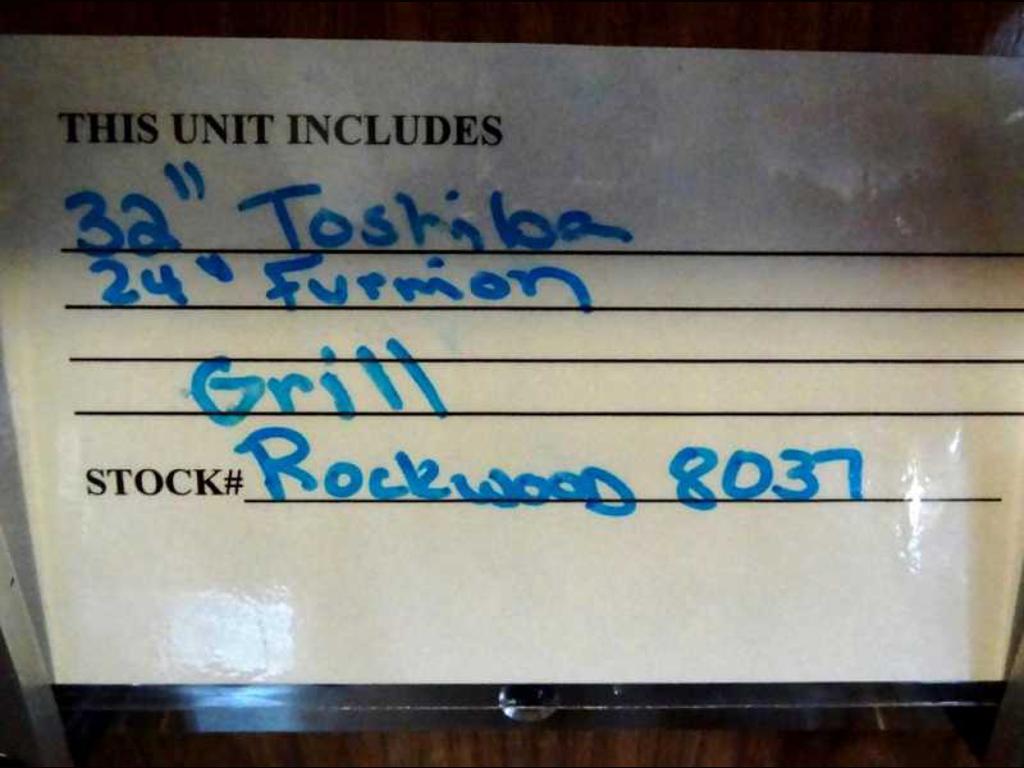 THIS UNIT INCLUDES
32" Toshiba
24" Furrion
Grill
STOCK# Rockwood 8037